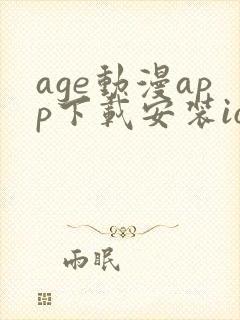 age動漫ap
p下載安裝io
雨眠